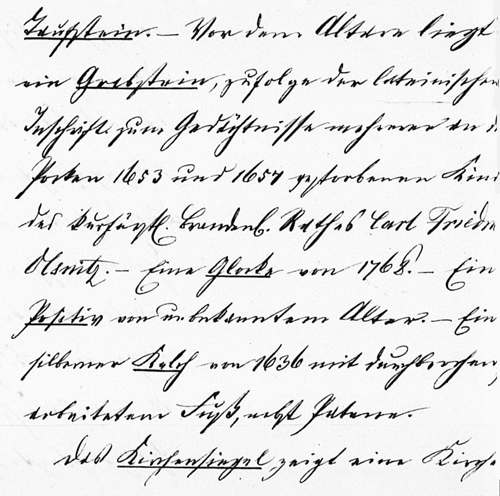 Taufstein. – Vor dem Altare liegt
ein Grabstein, zufolge der lateinischen
Inschrift zum Gedächtnisse mehrerer an d
Pocken 1653 und 1657 gestorbenen Kind
des kurfürstl. brandenb. Rathes Carl Friedr
– Eine Glocke von 1768. – Ein
Positiv von unbekanntem Alter. – Ein
silberner Kelch von 1636 mit durchbrochen
arbeitetem Fuß, nebst Patene.
Das Kirchensiegel zeigt eine Kirche